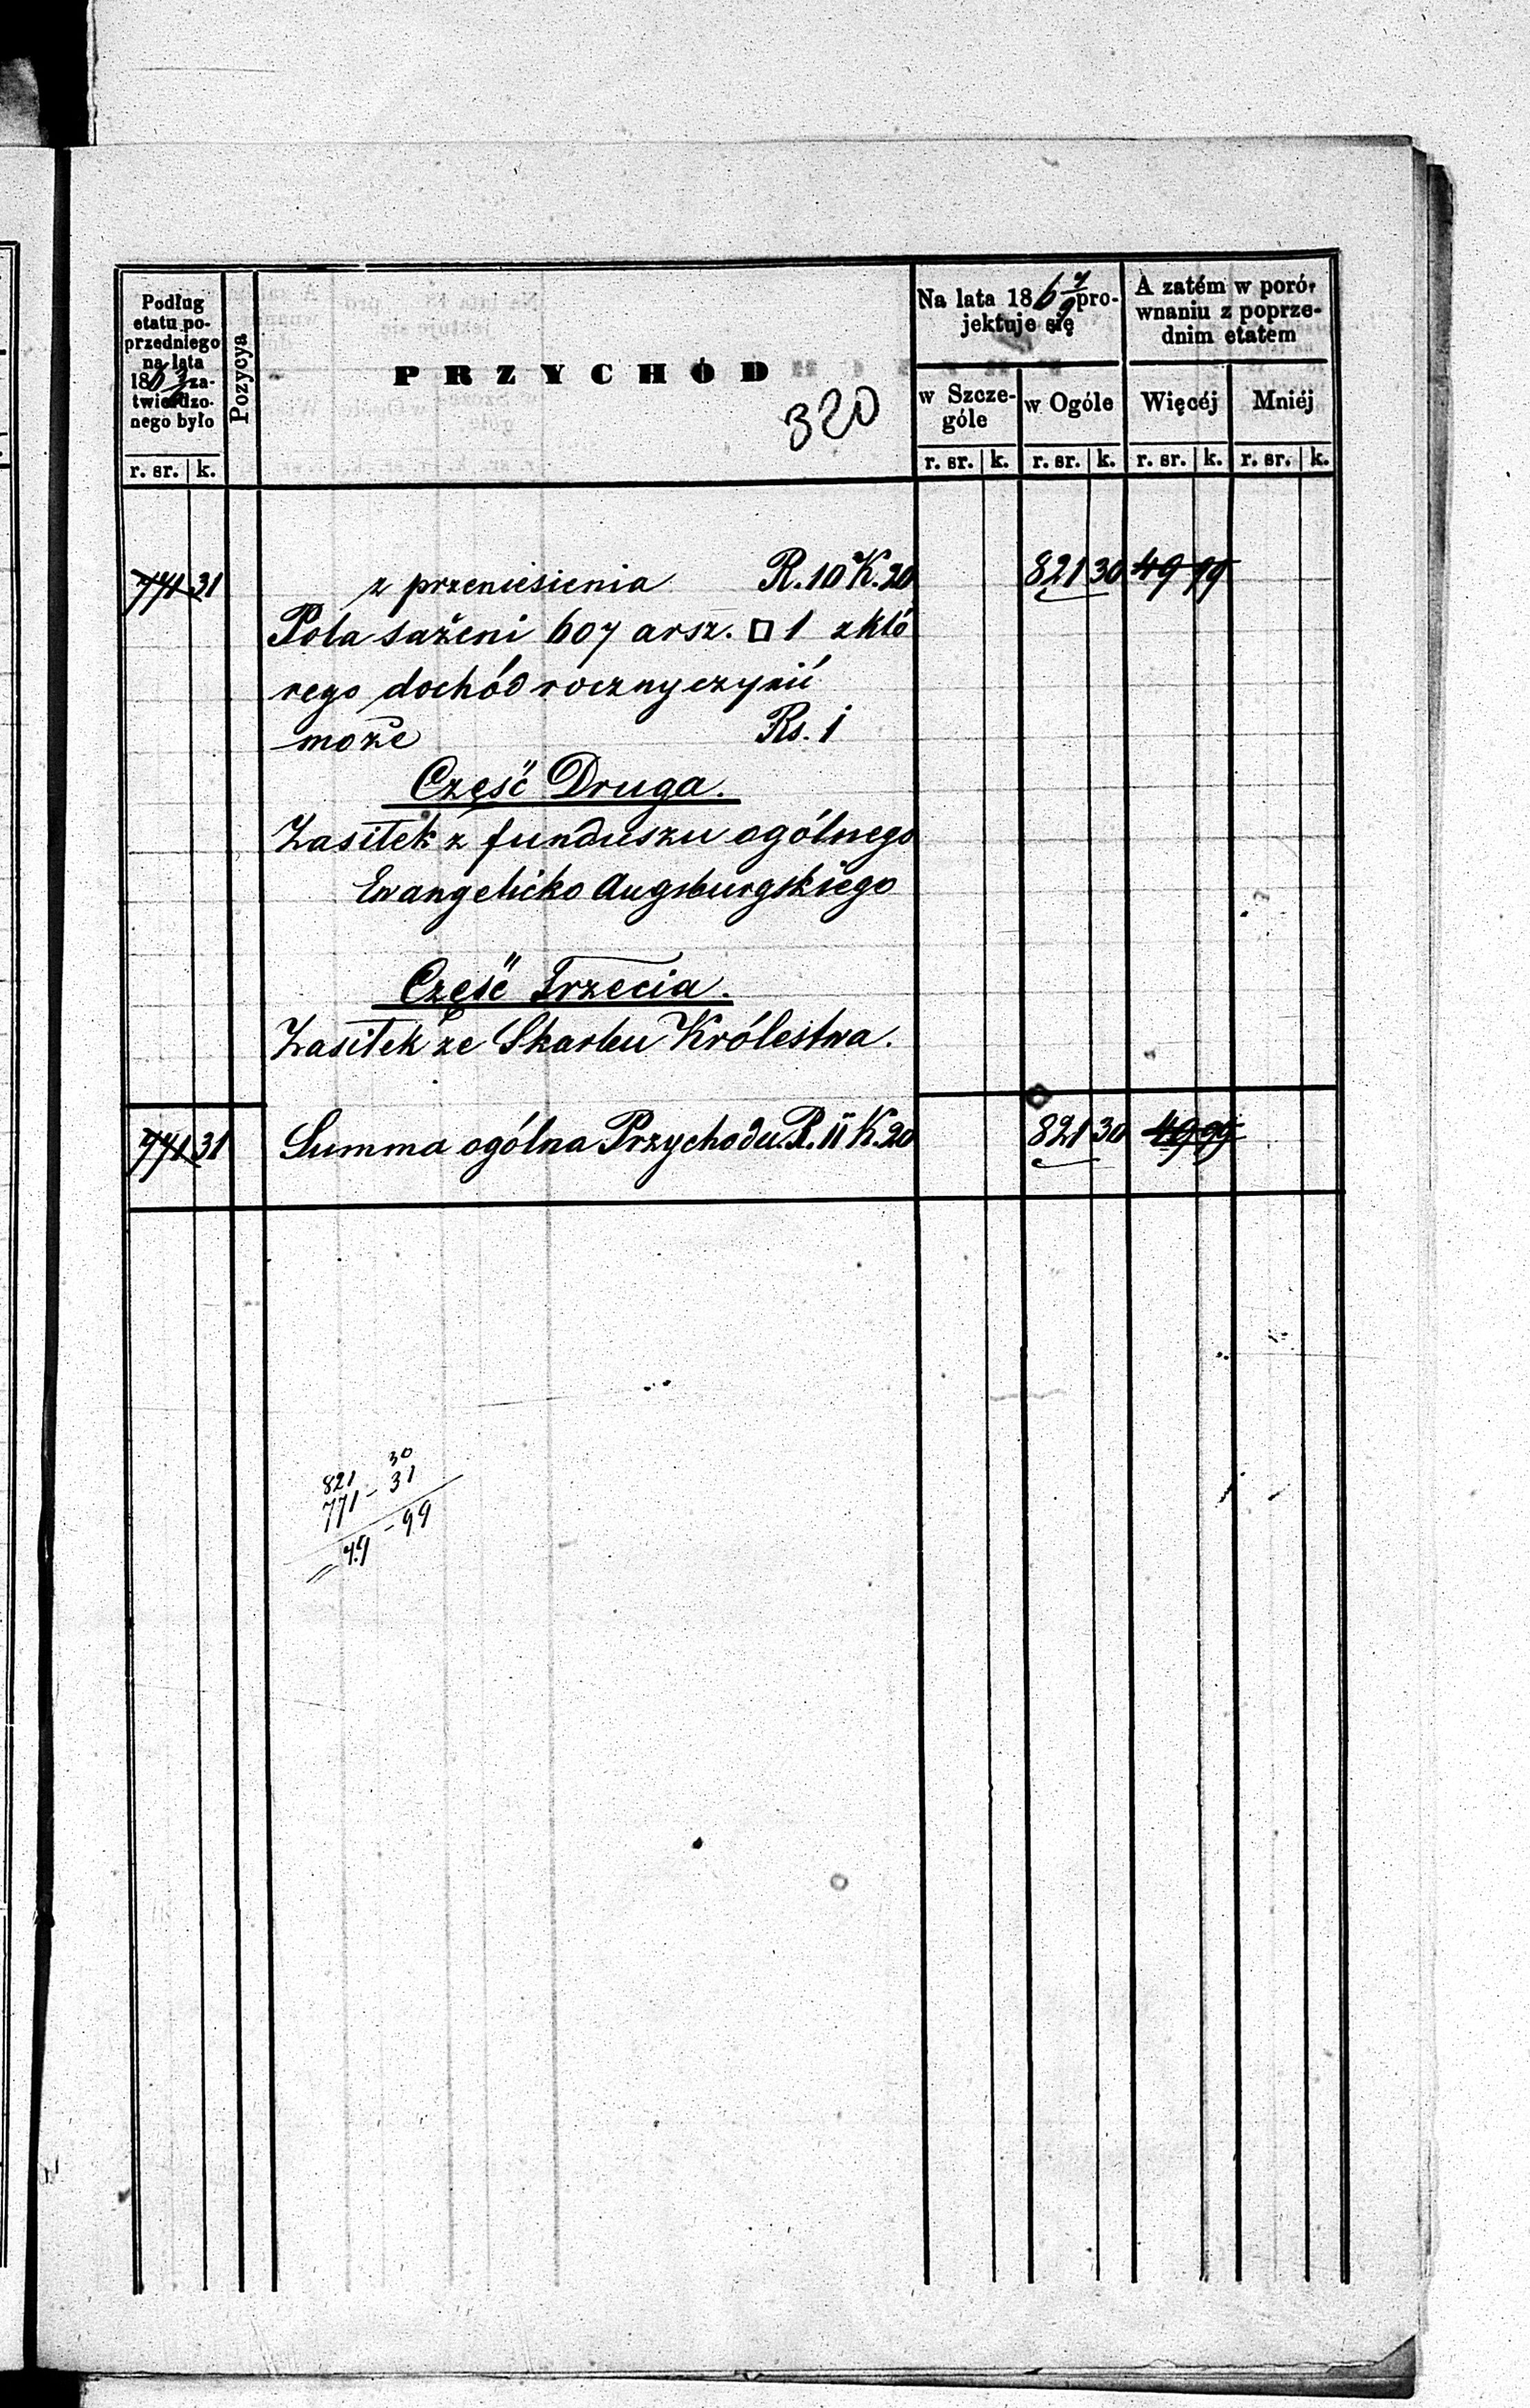 Podług
etatu po-
przedniego
na lata
186 3 za-
twierdzo-
nego było
r. sr. k.
Pozycya
PRZYCHÓD
320
Na lata 186 7/9 pro-
jektuje się
w Szcze-
góle
r. sr. k.
w Ogóle
r. sr. k.
A zatém w poró-
wnaniu z poprze-
dnim etatem
Więcéj
r. sr. k.
Mniéj
r. sr. k.
771 31 z przeniesienia R. 10 K. 20 821 30 49 99
Pola sażeni 607 arsz. □ 1 z któ
rego dochód roczny czynić
może Rs. 1
Część Druga.
Zasiłek z funduszu ogólnego
Ewangelicko Augsburgskiego
Część Trzecia.
Zasiłek ze Skarbu Królestwa.
771 31 Summa ogólna Przychodu R. 11 K. 20 821 30 49 99
821 30
771 - 31
49 - 99